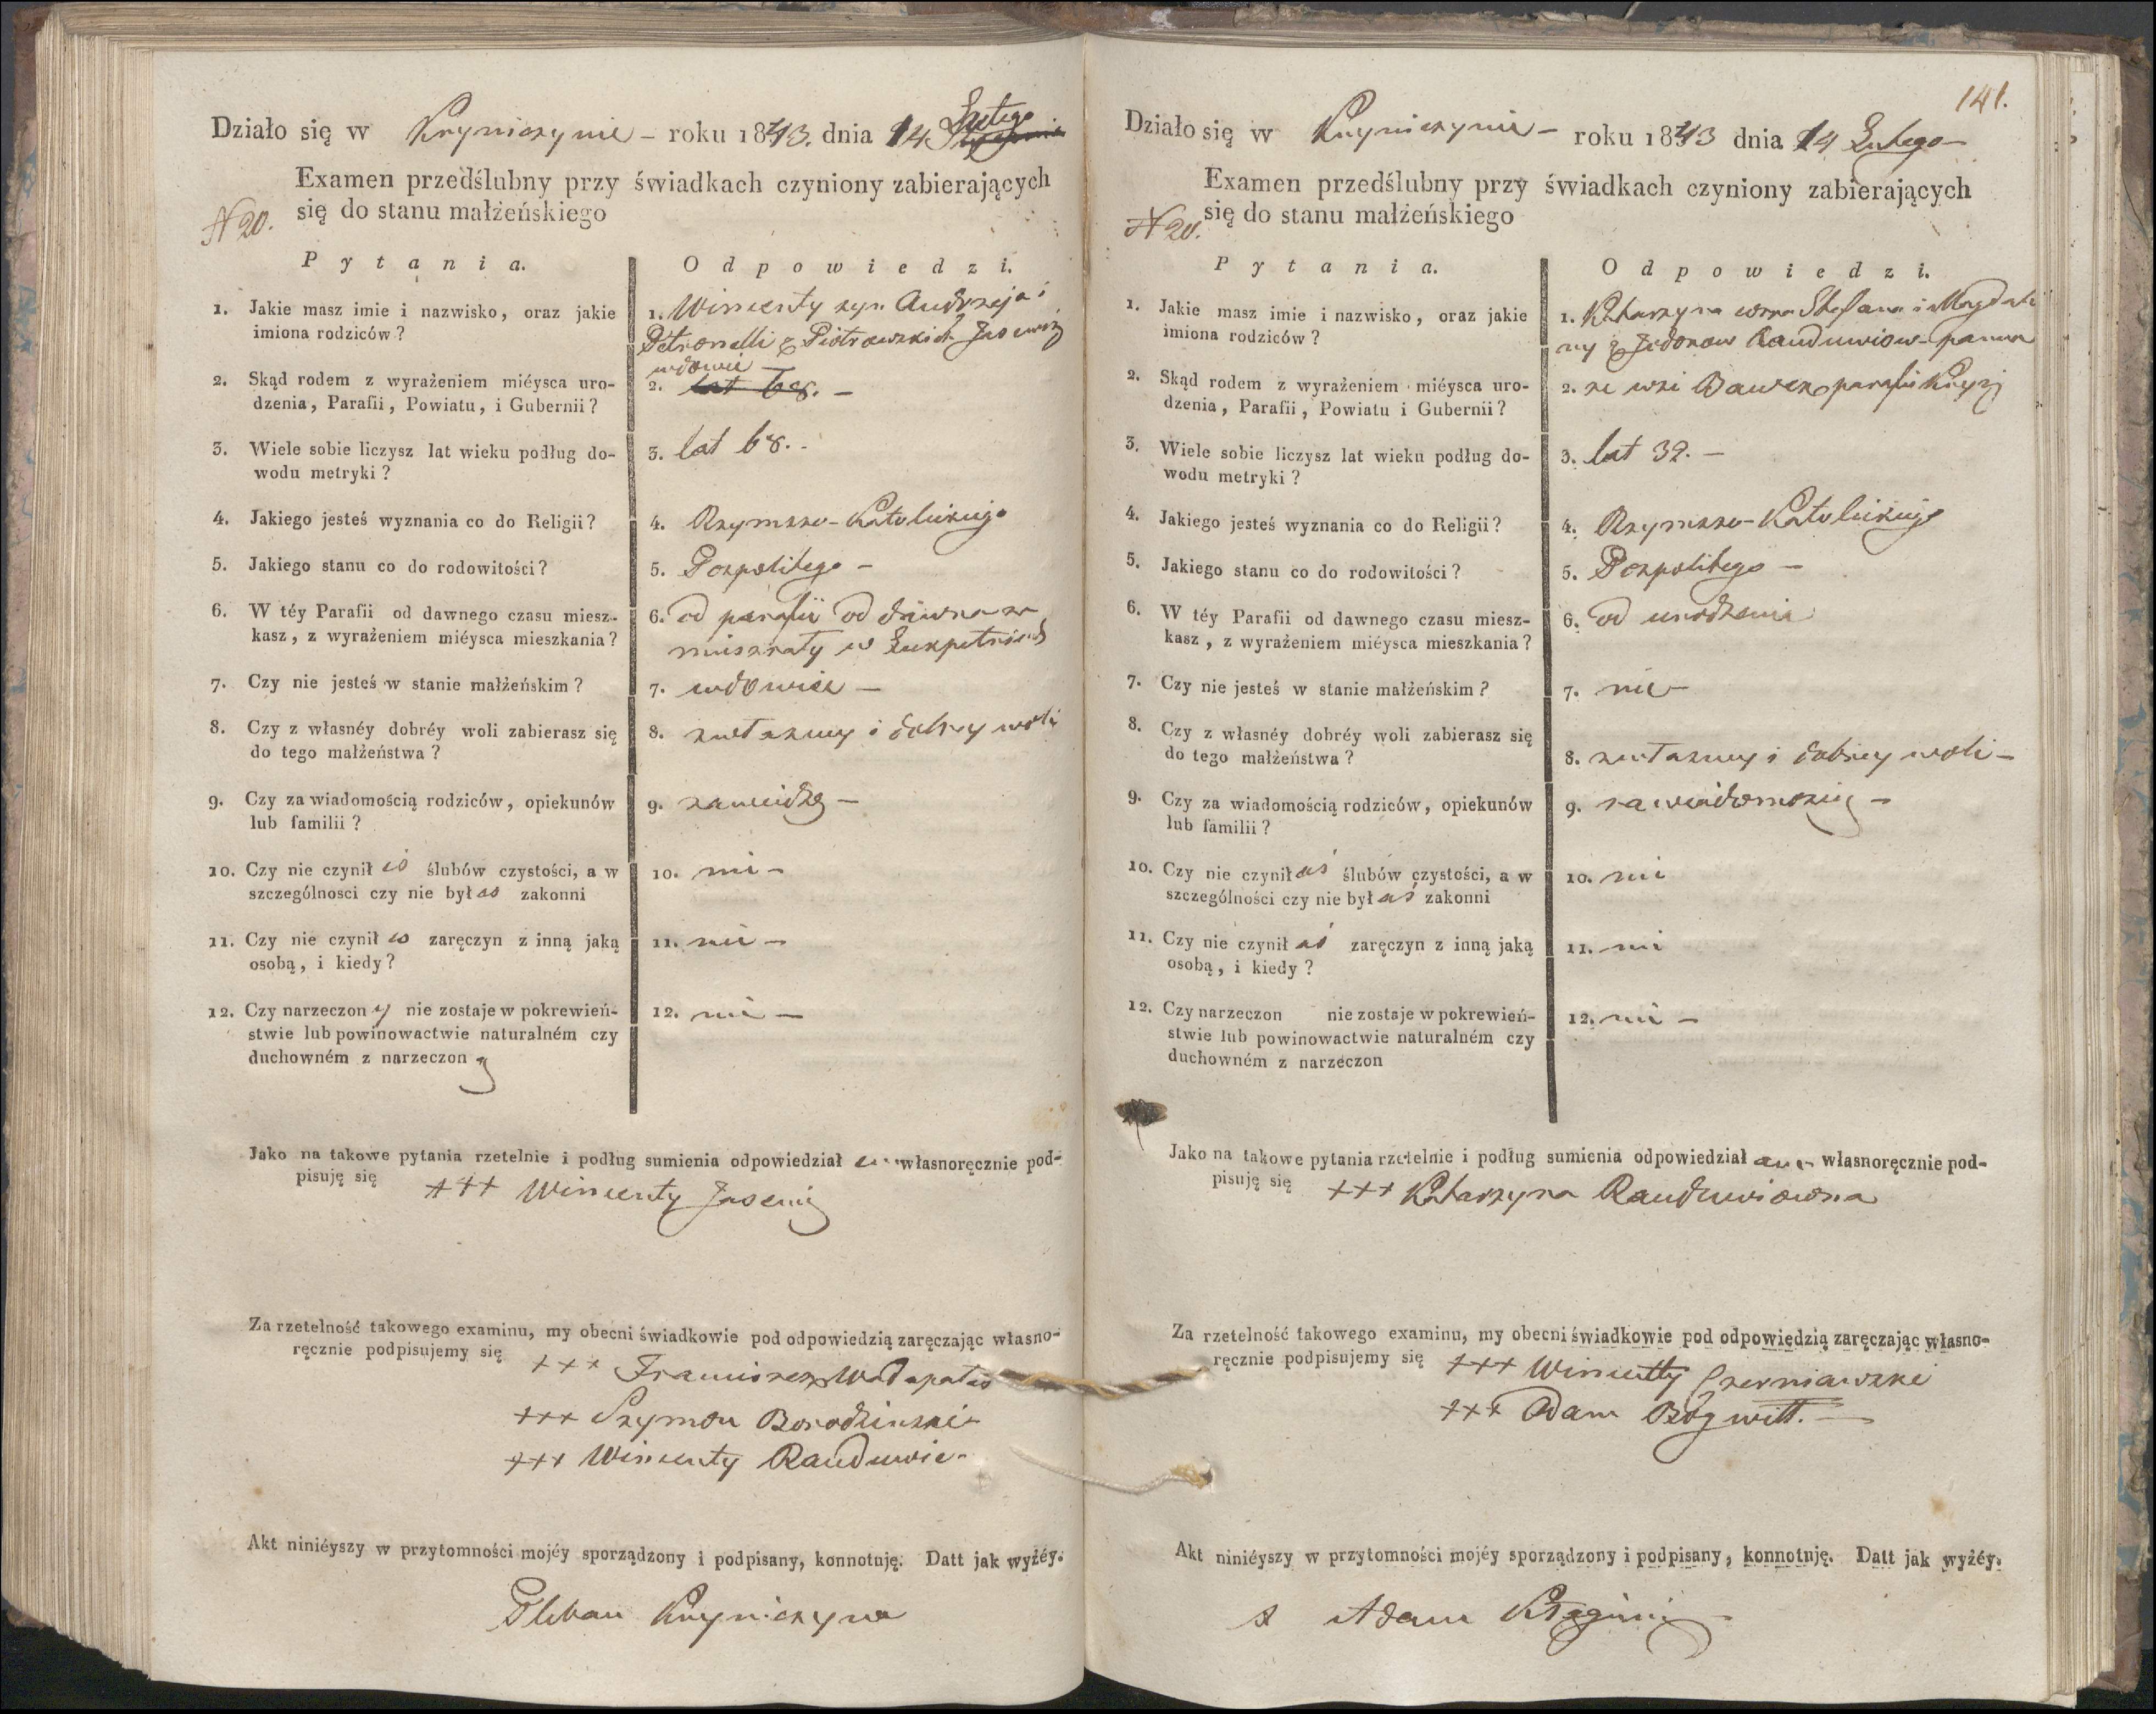 Działo się w Kryniczynie – roku 1843. dnia 14 Lutego
Examen przedślubny przy świadkach czyniony zabierających
się do stanu małżeńskiego
N 20.
Pytania. Odpowiedzi.
1. Jakie masz imie i nazwisko, oraz jakie
imiona rodziców?
1. Wincenty syn Andrzeja i
Petronelli z Piotrowskich
wdowiec
2. Skąd rodem z wyrażeniem miéysca uro-
dzenia, Parafii, Powiatu, i Gubernii?
2. lat 68. –
3. Wiele sobie liczysz lat wieku podług do-
wodu metryki?
3. lat 68. –
4. Jakiego jesteś wyznania co do Religii?
4. Rzymsko-Katolickiego
5. Jakiego stanu co do rodowitości?
5. Pospolitego –
6. W téy Parafii od dawnego czasu miesz-
kasz, z wyrażeniem miéysca mieszkania?
6. od parafii od dawna
w
7. Czy nie jesteś w stanie małżeńskim?
7. wdowiec –
8. Czy z własnéy dobréy woli zabierasz się
do tego małżeństwa?
8. z własney i dobrey woli
9. Czy za wiadomością rodziców, opiekunów
lub familii?
9.
10. Czy nie czynił eś ślubów czystości, a w
szczególnosci czy nie był eś zakonni
10. nie –
11. Czy nie czynił eś zaręczyn z inną jaką
osobą, i kiedy?
11. nie –
12. Czy narzeczon y nie zostaje w pokrewień-
stwie lub powinowactwie naturalném czy
duchowném z narzeczon ą
12. nie –
Jako na takowe pytania rzetelnie i podług sumienia odpowiedział em własnoręcznie pod-
pisuję się +++ Wincenty
Za rzetelność takowego examinu, my obecni świadkowie pod odpowiedzią zaręczając własno-
ręcznie podpisujemy się +++ Franciszek
+++ Szymon Borodziński
+++ Wincenty
Akt niniéyszy w przytomności mojéy sporządzony i podpisany, konnotuję. Datt jak wyżéy.
Pleban
141.
Działo się w Kryniczynie – roku 1843 dnia 14 Lutego –
Examen przedślubny przy świadkach czyniony zabierających
się do stanu małżeńskiego
N 20.
Pytania. Odpowiedzi.
1. Jakie masz imie i nazwisko, oraz jakie
imiona rodziców?
1. Katarzyna córka Stefana i Magdale
ny z panna
2. Skąd rodem z wyrażeniem miéysca uro-
dzenia, Parafii, Powiatu i Gubernii?
2. ze wsi parafii
3. Wiele sobie liczysz lat wieku podług do-
wodu metryki?
3. lat 39. –
4. Jakiego jesteś wyznania co do Religii?
4. Rzymsko-Katolickiego
5. Jakiego stanu co do rodowitości?
5. Pospolitego –
6. W téy Parafii od dawnego czasu miesz-
kasz, z wyrażeniem miéysca mieszkania?
6. od urodzenia
7. Czy nie jesteś w stanie małżeńskim?
7. nie –
8. Czy z własnéy dobréy woli zabierasz się
do tego małżeństwa?
8. z własney i dobrey woli –
9. Czy za wiadomością rodziców, opiekunów
lub familii?
9. za wiadomością –
10. Czy nie czynił aś ślubów czystości, a w
szczególności czy nie był aś zakonni
10. nie
11. Czy nie czynił aś zaręczyn z inną jaką
osobą, i kiedy?
11. nie
12. Czy narzeczon nie zostaje w pokrewień-
stwie lub powinowactwie naturalném czy
duchowném z narzeczon
12. nie –
Jako na takowe pytania rzetelnie i podług sumienia odpowiedział am własnoręcznie pod-
pisuję się +++ Katarzyna
Za rzetelność takowego examinu, my obecni świadkowie pod odpowiedzią zaręczając własno-
ręcznie podpisujemy się +++ Wincenty Czerniawski
+++ Adam
Akt niniéyszy w przytomności mojéy sporządzony i podpisany, konnotuję. Datt jak wyżéy.
X Adam